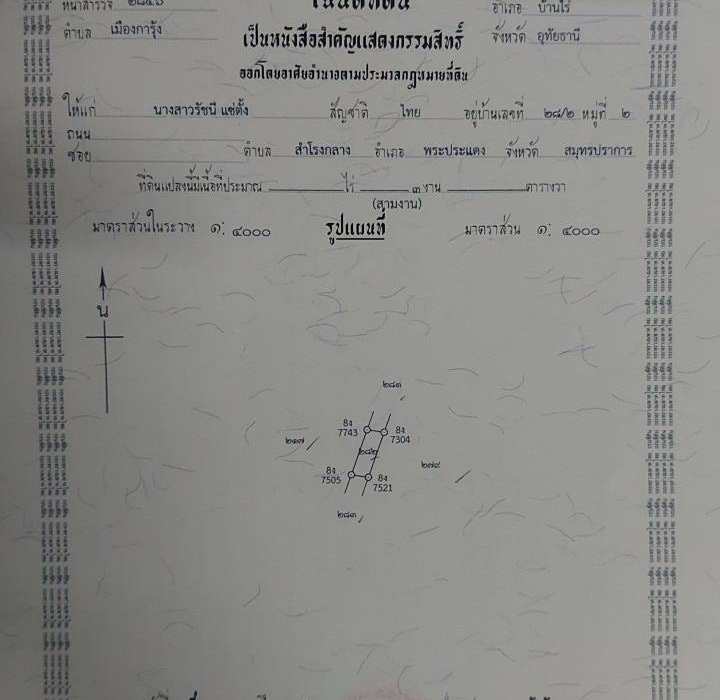 หน้าสำรวจ ๒๘๔๖ อำเภอ บ้านไร่
โฉนดที่ดิน
ตำบล เมืองการุ้ง เป็นหนังสือสำคัญแสดงกรรมสิทธิ์ จังหวัด อุทัยธานี
ออกโดยอาศัยอำนาจตามประมวลกฎหมายที่ดิน
ให้แก่ นางสาวรัชนี แซ่ตั้ง สัญชาติ ไทย อยู่บ้านเลขที่ ๒๘/๒ หมู่ที่ ๒
ถนน
ซอย ตำบล สำโรงกลาง อำเภอ พระประแดง จังหวัด สมุทรปราการ
ที่ดินแปลงนี้มีเนื้อที่ประมาณ ไร่ ๓ งาน ตารางวา
(สามงาน)
มาตราส่วนในระวาง ๑: ๔๐๐๐ รูปแผนที่ มาตราส่วน ๑: ๔๐๐๐
น
๒๘๑
8ง 7743
8ง 7304
๒๑๗
๒๘๒
๒๗๙
8ง 7505
8ง 7521
๒๘๓